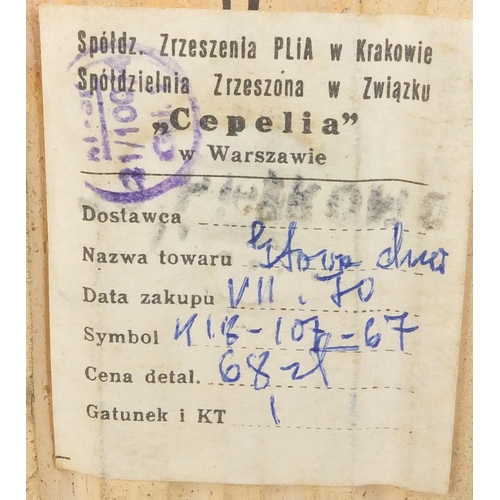 Spółdz. Zrzeszenia PLiA w Krakowie
Spółdzielnia Zrzeszona w Związku
„Cepelia”
w Warszawie
Dostawca
Nazwa towaru Głowa
Data zakupu VII. 70
Symbol K18-107-67
Cena detal. 68 zł
Gatunek i KT 1
21/100